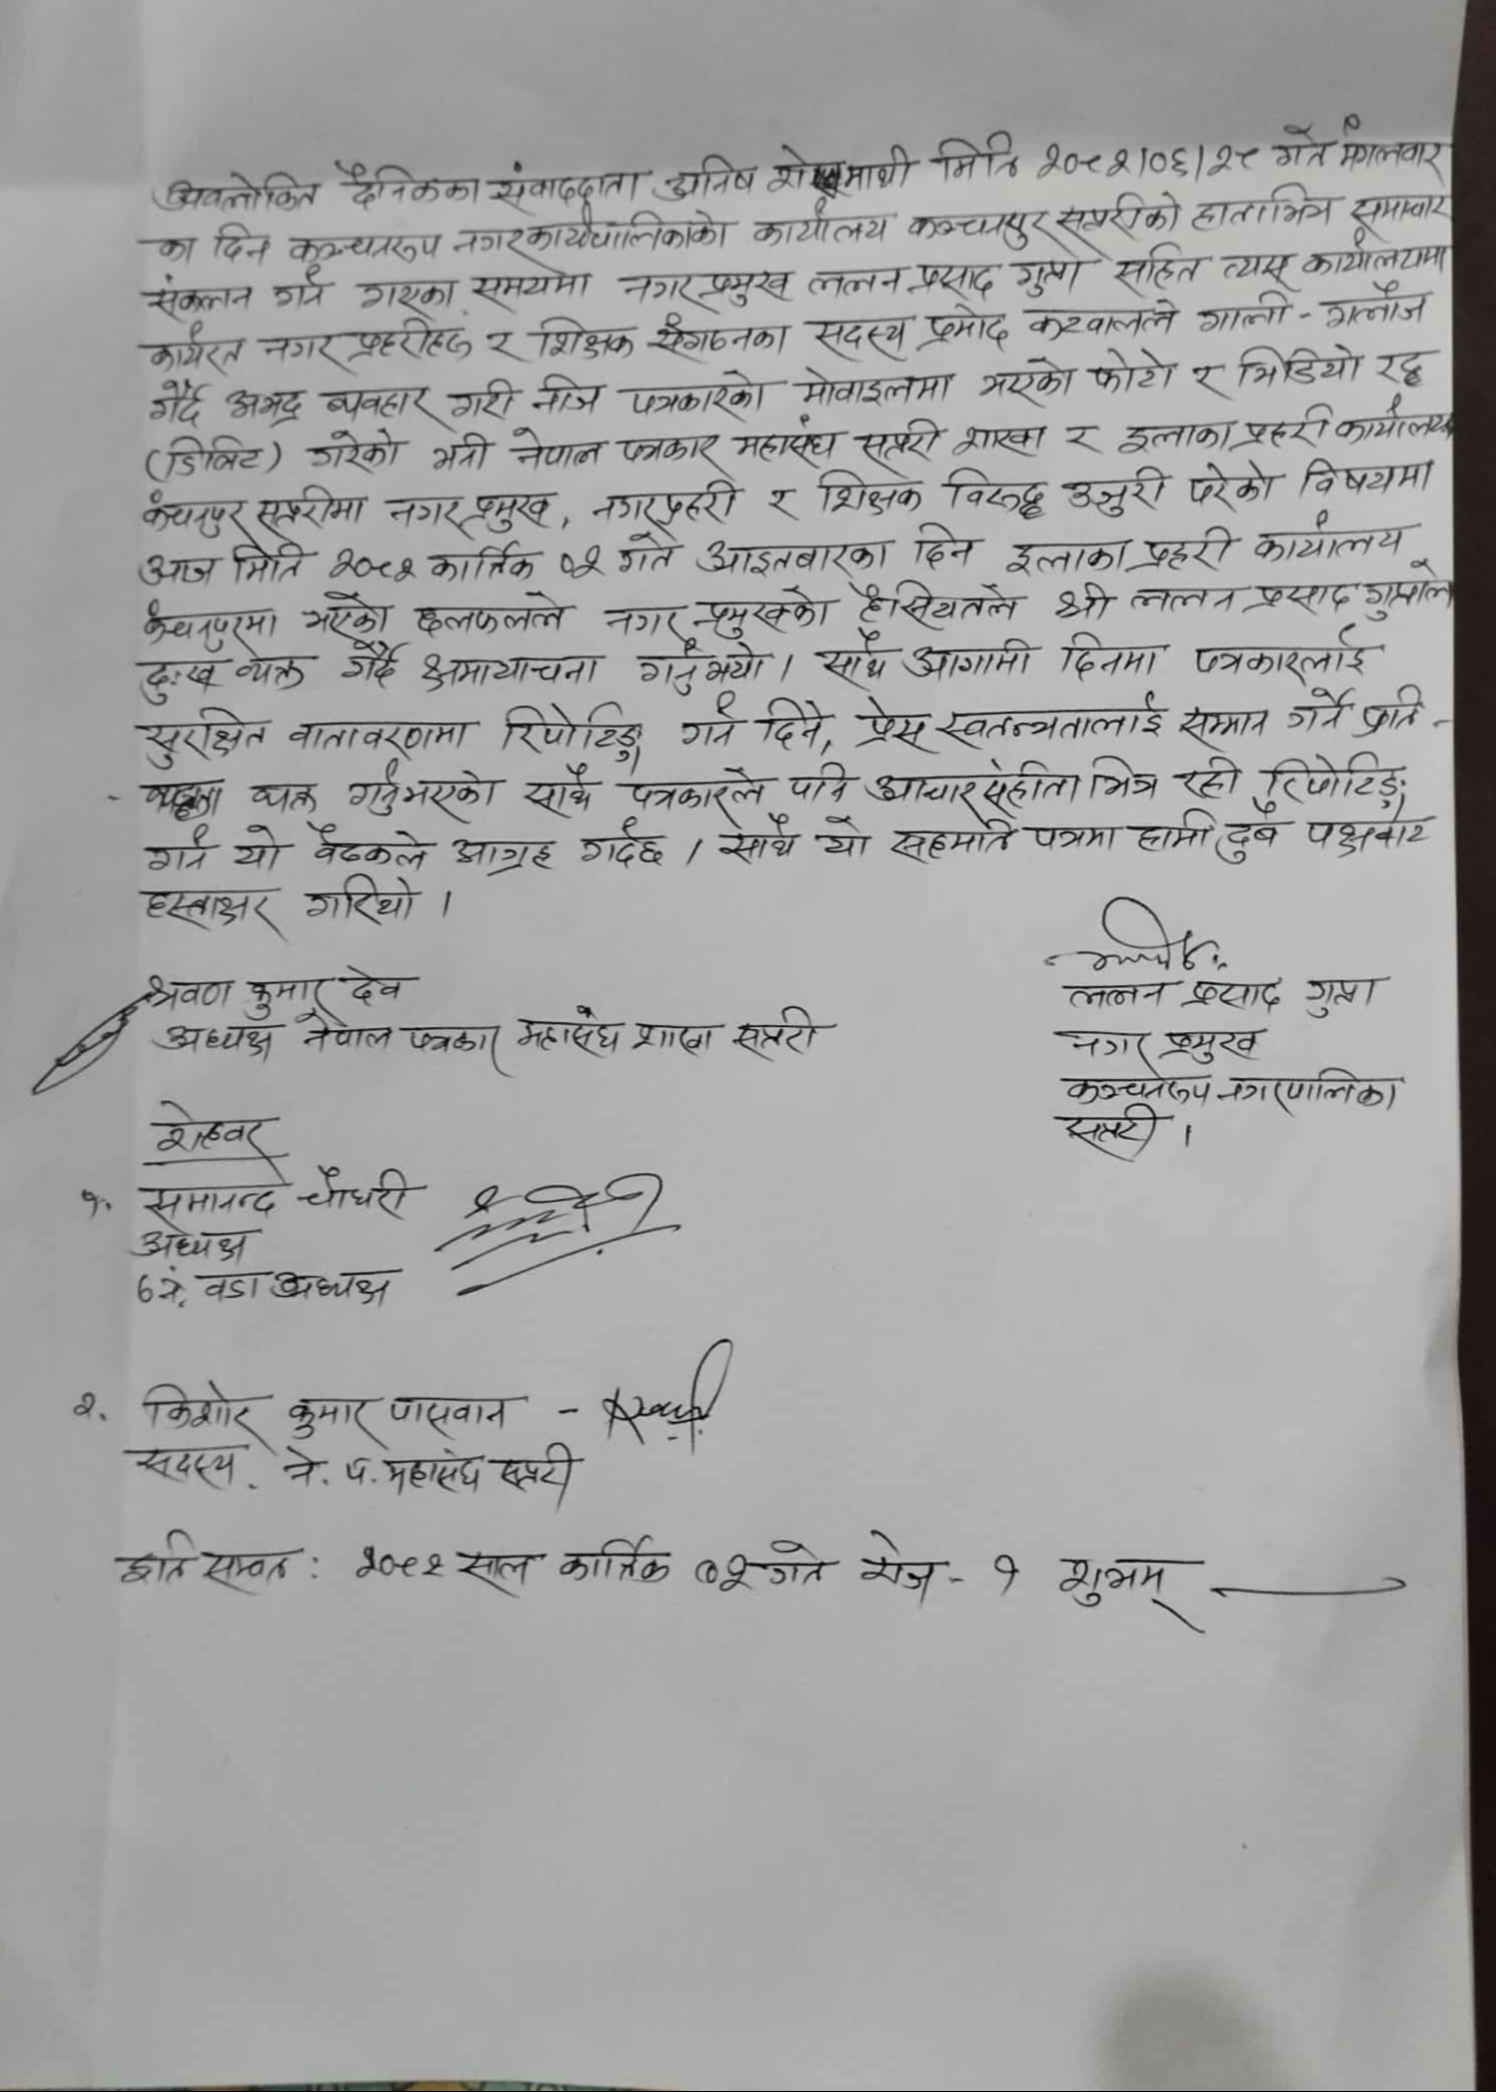 अवलोकित दैनिकका संवाददाता अनिष माथी मिति २०८२।०६।२८ गते मंगलवार
का दिन कञ्चनरूप नगरकार्यपालिकाको कार्यालय कञ्चनपुर सप्तरीको हाताभित्र समाचार
संकलन गर्न गएका समयमा नगर प्रमुख ललन प्रसाद गुप्ता सहित त्यस कार्यालयमा
कार्यरत नगर प्रहरीहरु र शिक्षक संगठनका सदस्य प्रमोद कटवालले गाली - गलौज
गर्दै अभद्र व्यवहार गरी निज पत्रकारको मोवाइलमा भएको फोटो र भिडियो रद्द
(डिलिट) गरेको भनी नेपाल पत्रकार महासंघ सप्तरी शाखा र इलाका प्रहरी कार्यालय
कंचनपुर सप्तरीमा नगर प्रमुख, नगर प्रहरी र शिक्षक विरूद्ध उजुरी परेको विषयमा
आज मिति २०८२ कार्तिक ०२ गते आइतबारका दिन इलाका प्रहरी कार्यालय
कंचनपुरमा भएको छलफलले नगर प्रमुखको हैसियतले श्री ललन प्रसाद गुप्ताले
दुःख व्यक्त गर्दै क्षमायाचना गर्नुभयो। साथै आगामी दिनमा पत्रकारलाई
सुरक्षित वातावरणमा रिपोटिङ्ग गर्न दिने, प्रेस स्वतन्त्रतालाई सम्मान गर्ने प्रति -
व्यक्त गर्नुभएको साथै पत्रकारले पनि आचारसंहीता भित्र रही रिपोटिङ्ग
गर्न यो वैठकले आग्रह गर्दछ। साथै यो सहमति पत्रमा हामी दुवै पक्षबाट
हस्ताक्षर गरियो।
श्रवण कुमार देव
अध्यक्ष नेपाल पत्रकार महासंघ शाखा सप्तरी
ललन प्रसाद गुप्ता
नगर प्रमुख
कञ्चनरूप नगरपालिका
सप्तरी।
रोहवर
१. समानन्द चौधरी
अध्यक्ष
६ नं. वडा अध्यक्ष
२. किशोर कुमार पासवान -
सदस्य. ने. प. महासंघ सप्तरी
इति सम्वत: २०८२ साल कार्तिक ०२ गते रोज - १ शुभम्